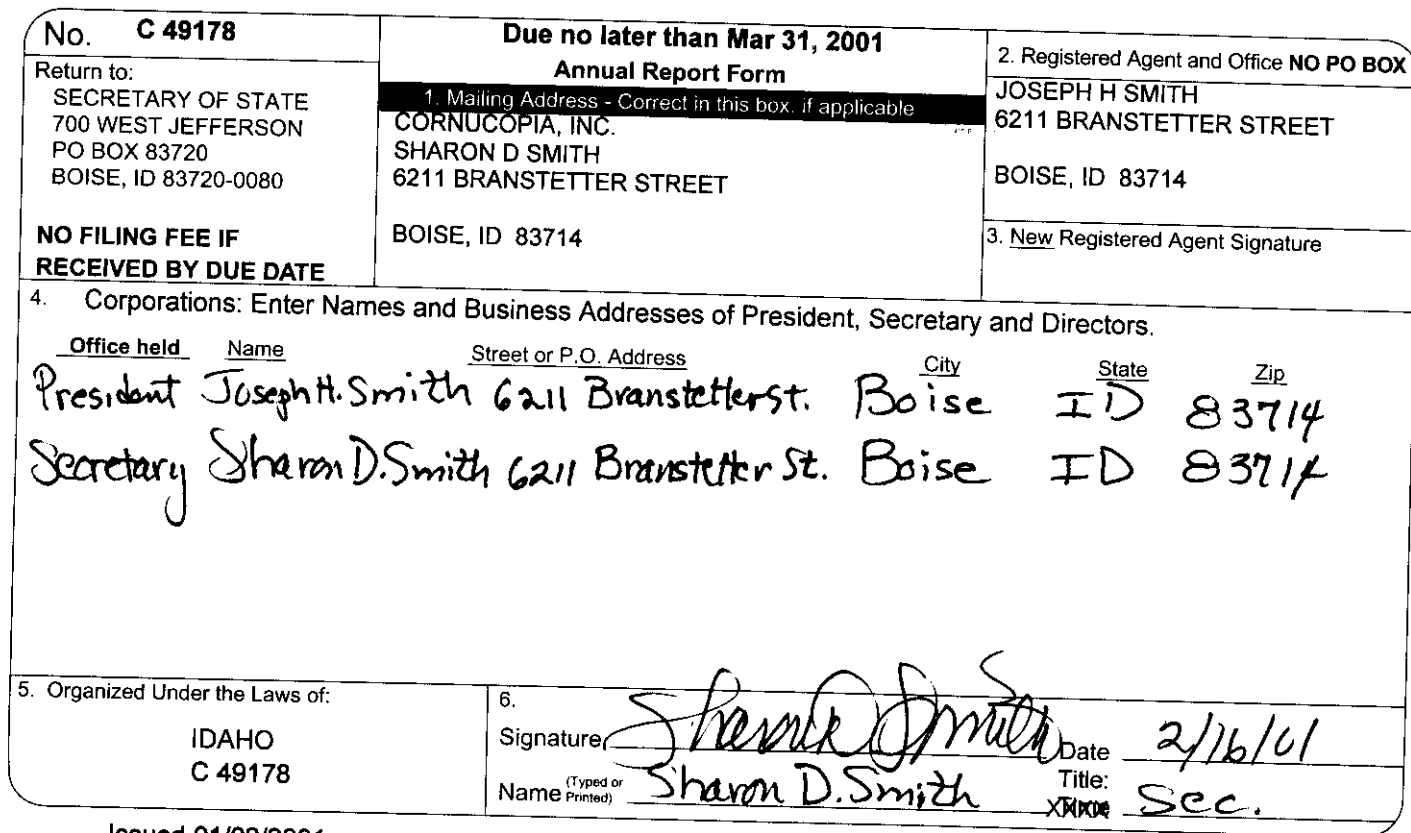 No. C 49178
Return to:
SECRETARY OF STATE
700 WEST JEFFERSON
PO BOX 83720
BOISE, ID 83720-0080
NO FILING FEE IF
RECEIVED BY DUE DATE
Due no later than Mar 31, 2001
Annual Report Form
1. Mailing Address - Correct in this box, if applicable
CORNUCOPIA, INC.
SHARON D SMITH
6211 BRANSTETTER STREET
BOISE, ID 83714
2. Registered Agent and Office NO PO BOX
JOSEPH H SMITH
6211 BRANSTETTER STREET
BOISE, ID 83714
3. New Registered Agent Signature
4. Corporations: Enter Names and Business Addresses of President, Secretary and Directors.
Office held Name Street or P.O. Address City State Zip
President Joseph H. Smith 6211 Branstetter St. Boise ID 83714
Secretary Sharon D. Smith 6211 Branstetter St. Boise ID 83714
5. Organized Under the Laws of:
IDAHO
C 49178
6.
Signature Sharon D Smith Date 2/16/01
Name (Typed or Printed) Sharon D. Smith Title: Sec.
Issued 01/02/2001